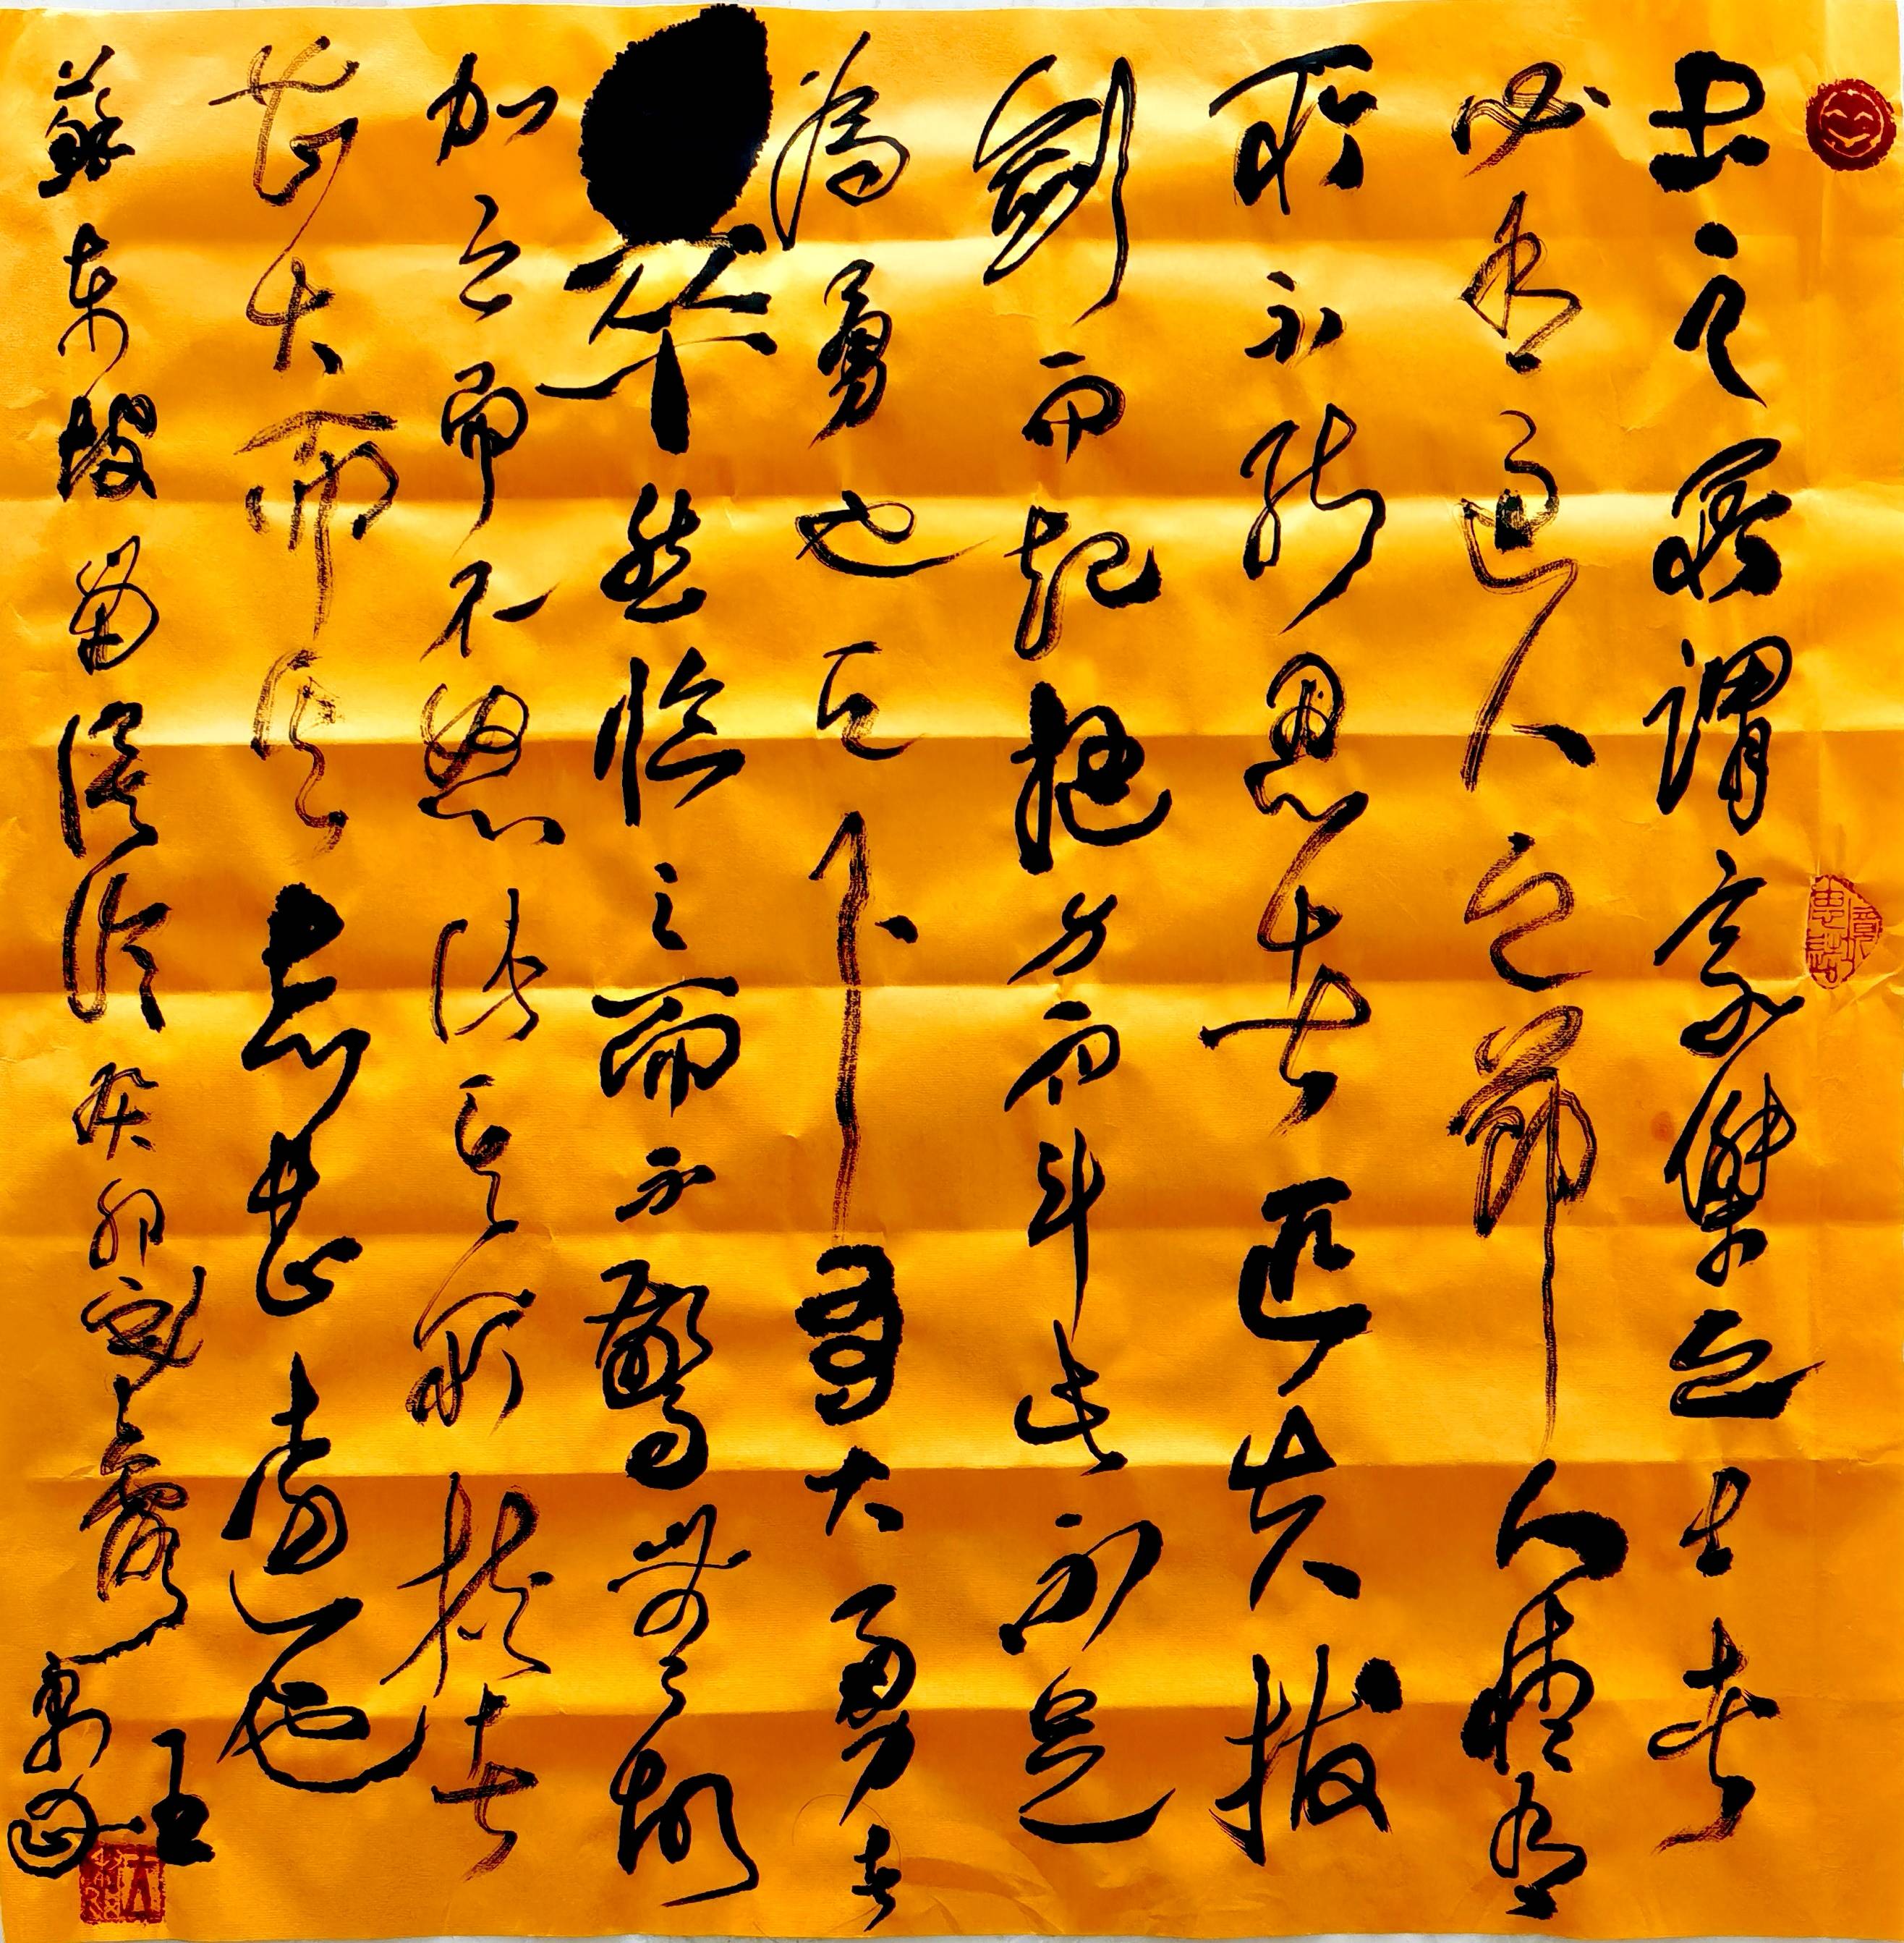 古之所謂豪傑之士者
必有過人之節人情有
所不能忍者匹夫拔
劍而起挺身而斗此不足
為勇也天下有大勇者
卒然臨之而不驚無故
加之而不怒此其所挾者
甚大而其志甚遠也
蘇東坡留侯論癸卯寒露
王